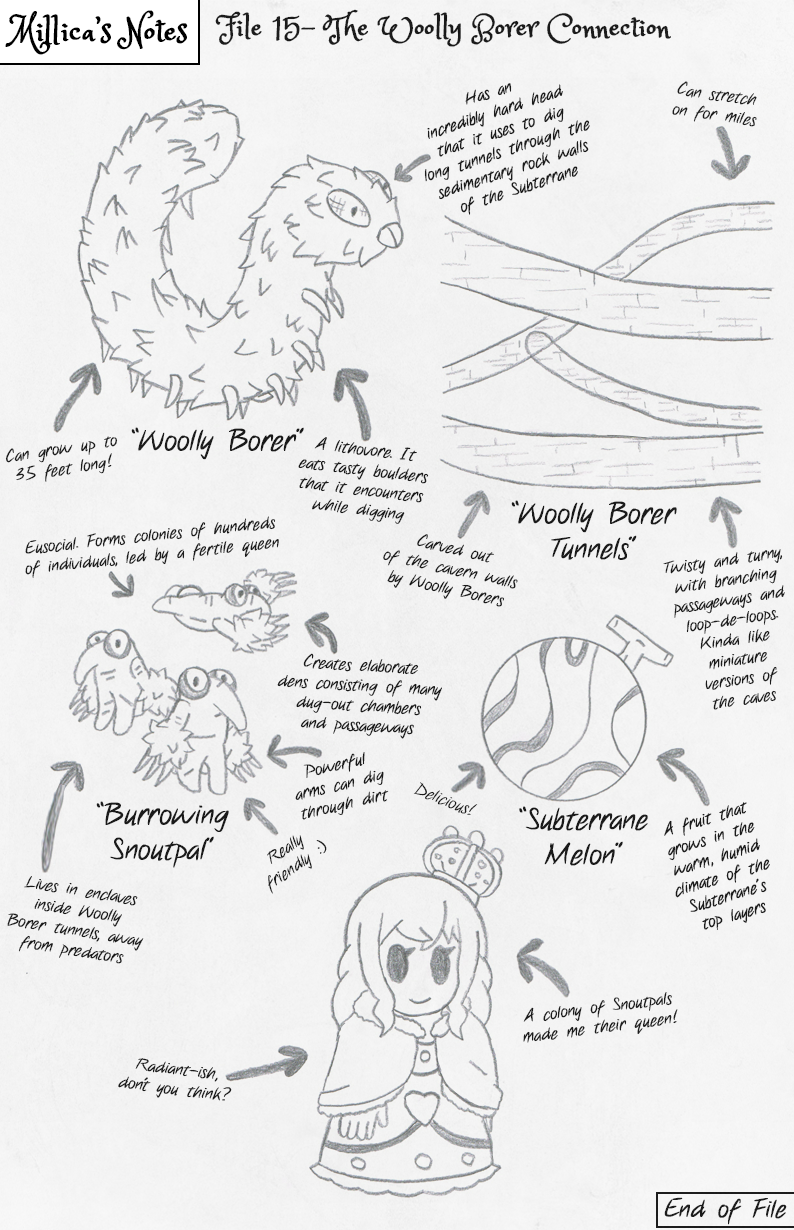 Millica's Notes
File 15– The Woolly Borer Connection
Has an
incredibly hard head
that it uses to dig
long tunnels through the
sedimentary rock walls
of the Subterrane
Can stretch
on for miles
Can grow up to
35 feet long!
"Woolly Borer"
A lithovore. It
eats tasty boulders
that it encounters
while digging
"Woolly Borer
Tunnels"
Carved out
of the cavern walls
by Woolly Borers
Twisty and turny,
with branching
passageways and
loop-de-loops.
Kinda like
miniature
versions of
the caves
Eusocial. Forms colonies of hundreds
of individuals, led by a fertile queen
Creates elaborate
dens consisting of many
dug-out chambers
and passageways
Powerful
arms can dig
through dirt
"Burrowing
Snoutpal"
Really
friendly :)
Lives in enclaves
inside Woolly
Borer tunnels, away
from predators
Delicious!
"Subterrane
Melon"
A fruit that
grows in the
warm, humid
climate of the
Subterrane's
top layers
A colony of Snoutpals
made me their queen!
Radiant-ish,
don't you think?
End of File